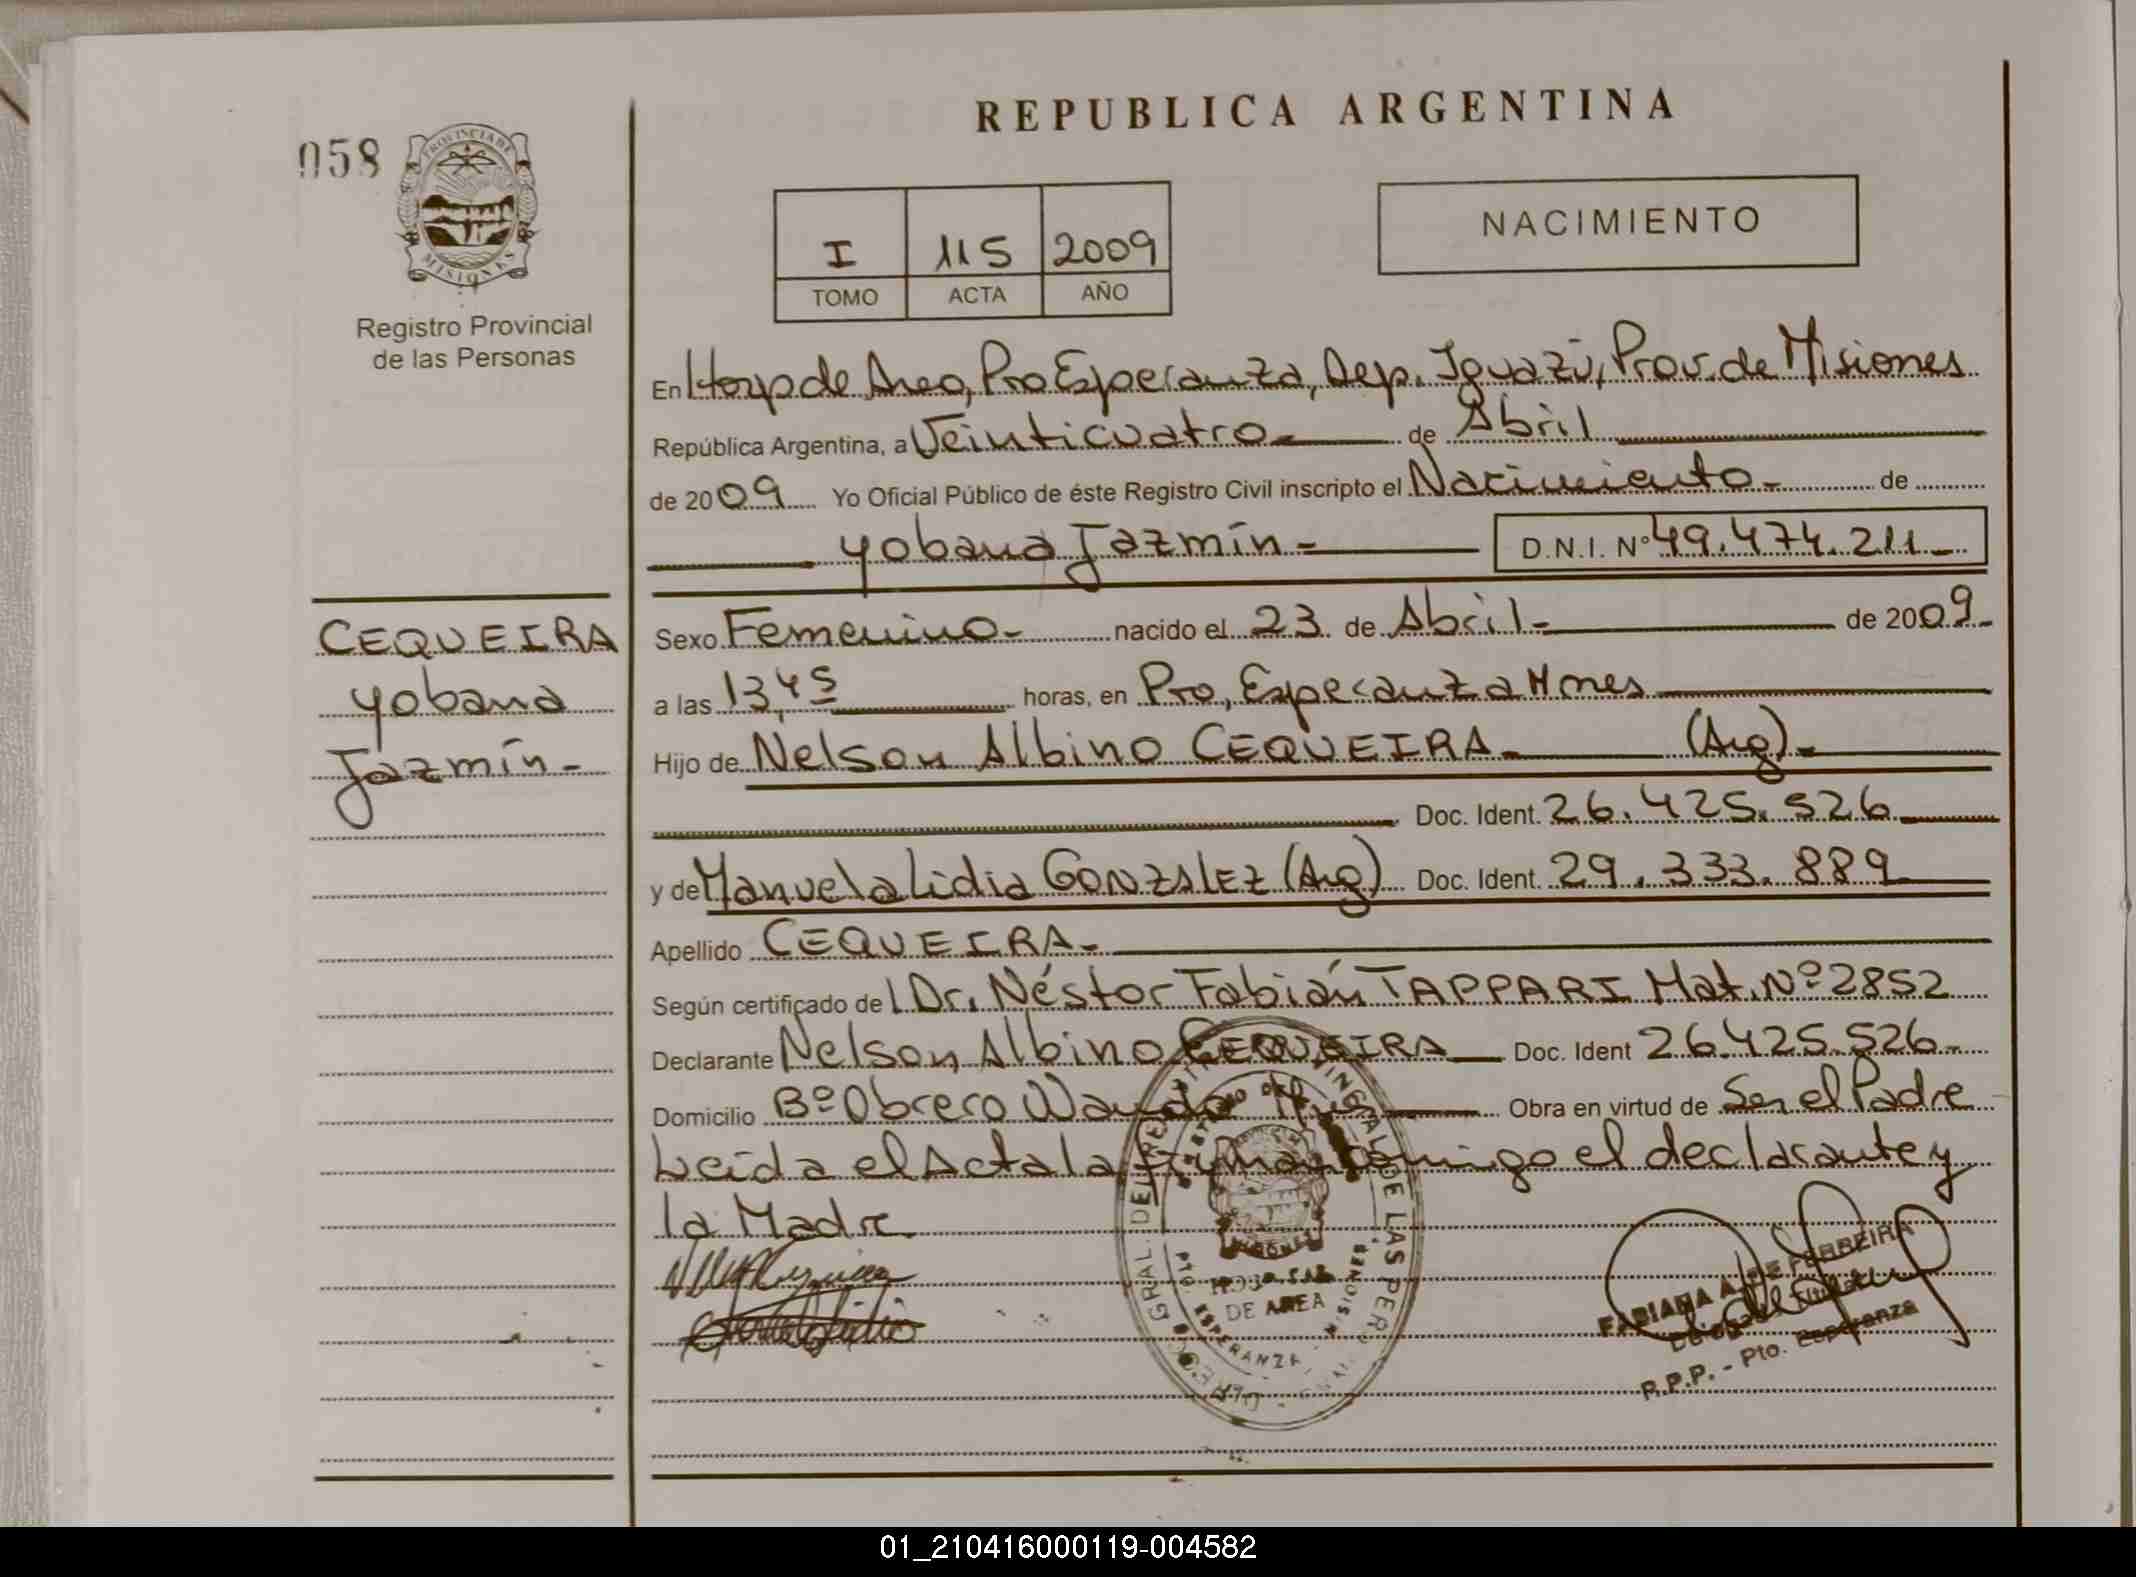 REPUBLICA ARGENTINA
058
PROVINCIA DE
MISIONES
Registro Provincial
de las Personas
I 115 2009
TOMO ACTA AÑO
NACIMIENTO
En Hosp de Area, Pto Esperanza, Dep. Iguazú, Prov. de Misiones
República Argentina, a Veinticuatro de Abril
de 2009 Yo Oficial Público de éste Registro Civil inscripto el Nacimiento de
Yobana Jazmín D.N.I. Nº 49.474.211
CEQUEIRA
Yobana
Jazmín
Sexo Femenino nacido el 23 de Abril de 2009
a las 13,45 horas, en Pto, Esperanza Mnes
Hijo de Nelson Albino CEQUEIRA (Arg)
Doc. Ident. 26.425.526
y de Manuela Lidia GONZALEZ (Arg) Doc. Ident. 29.333.889
Apellido CEQUEIRA
Según certificado de l Dr. Néstor Fabián TAPPARI Mat. Nº 2852
Declarante Nelson, Albino CEQUEIRA Doc. Ident 26.425.526
Domicilio Bº Obrero Wanda Obra en virtud de Ser el Padre
Leida el Acta la firman comigo el declarante y
la Madre
DE AREA
ESPERANZA MISIONES
FABIANA A. DE FERREIRA
R.P.P. - Pto. Esperanza
01_210416000119-004582